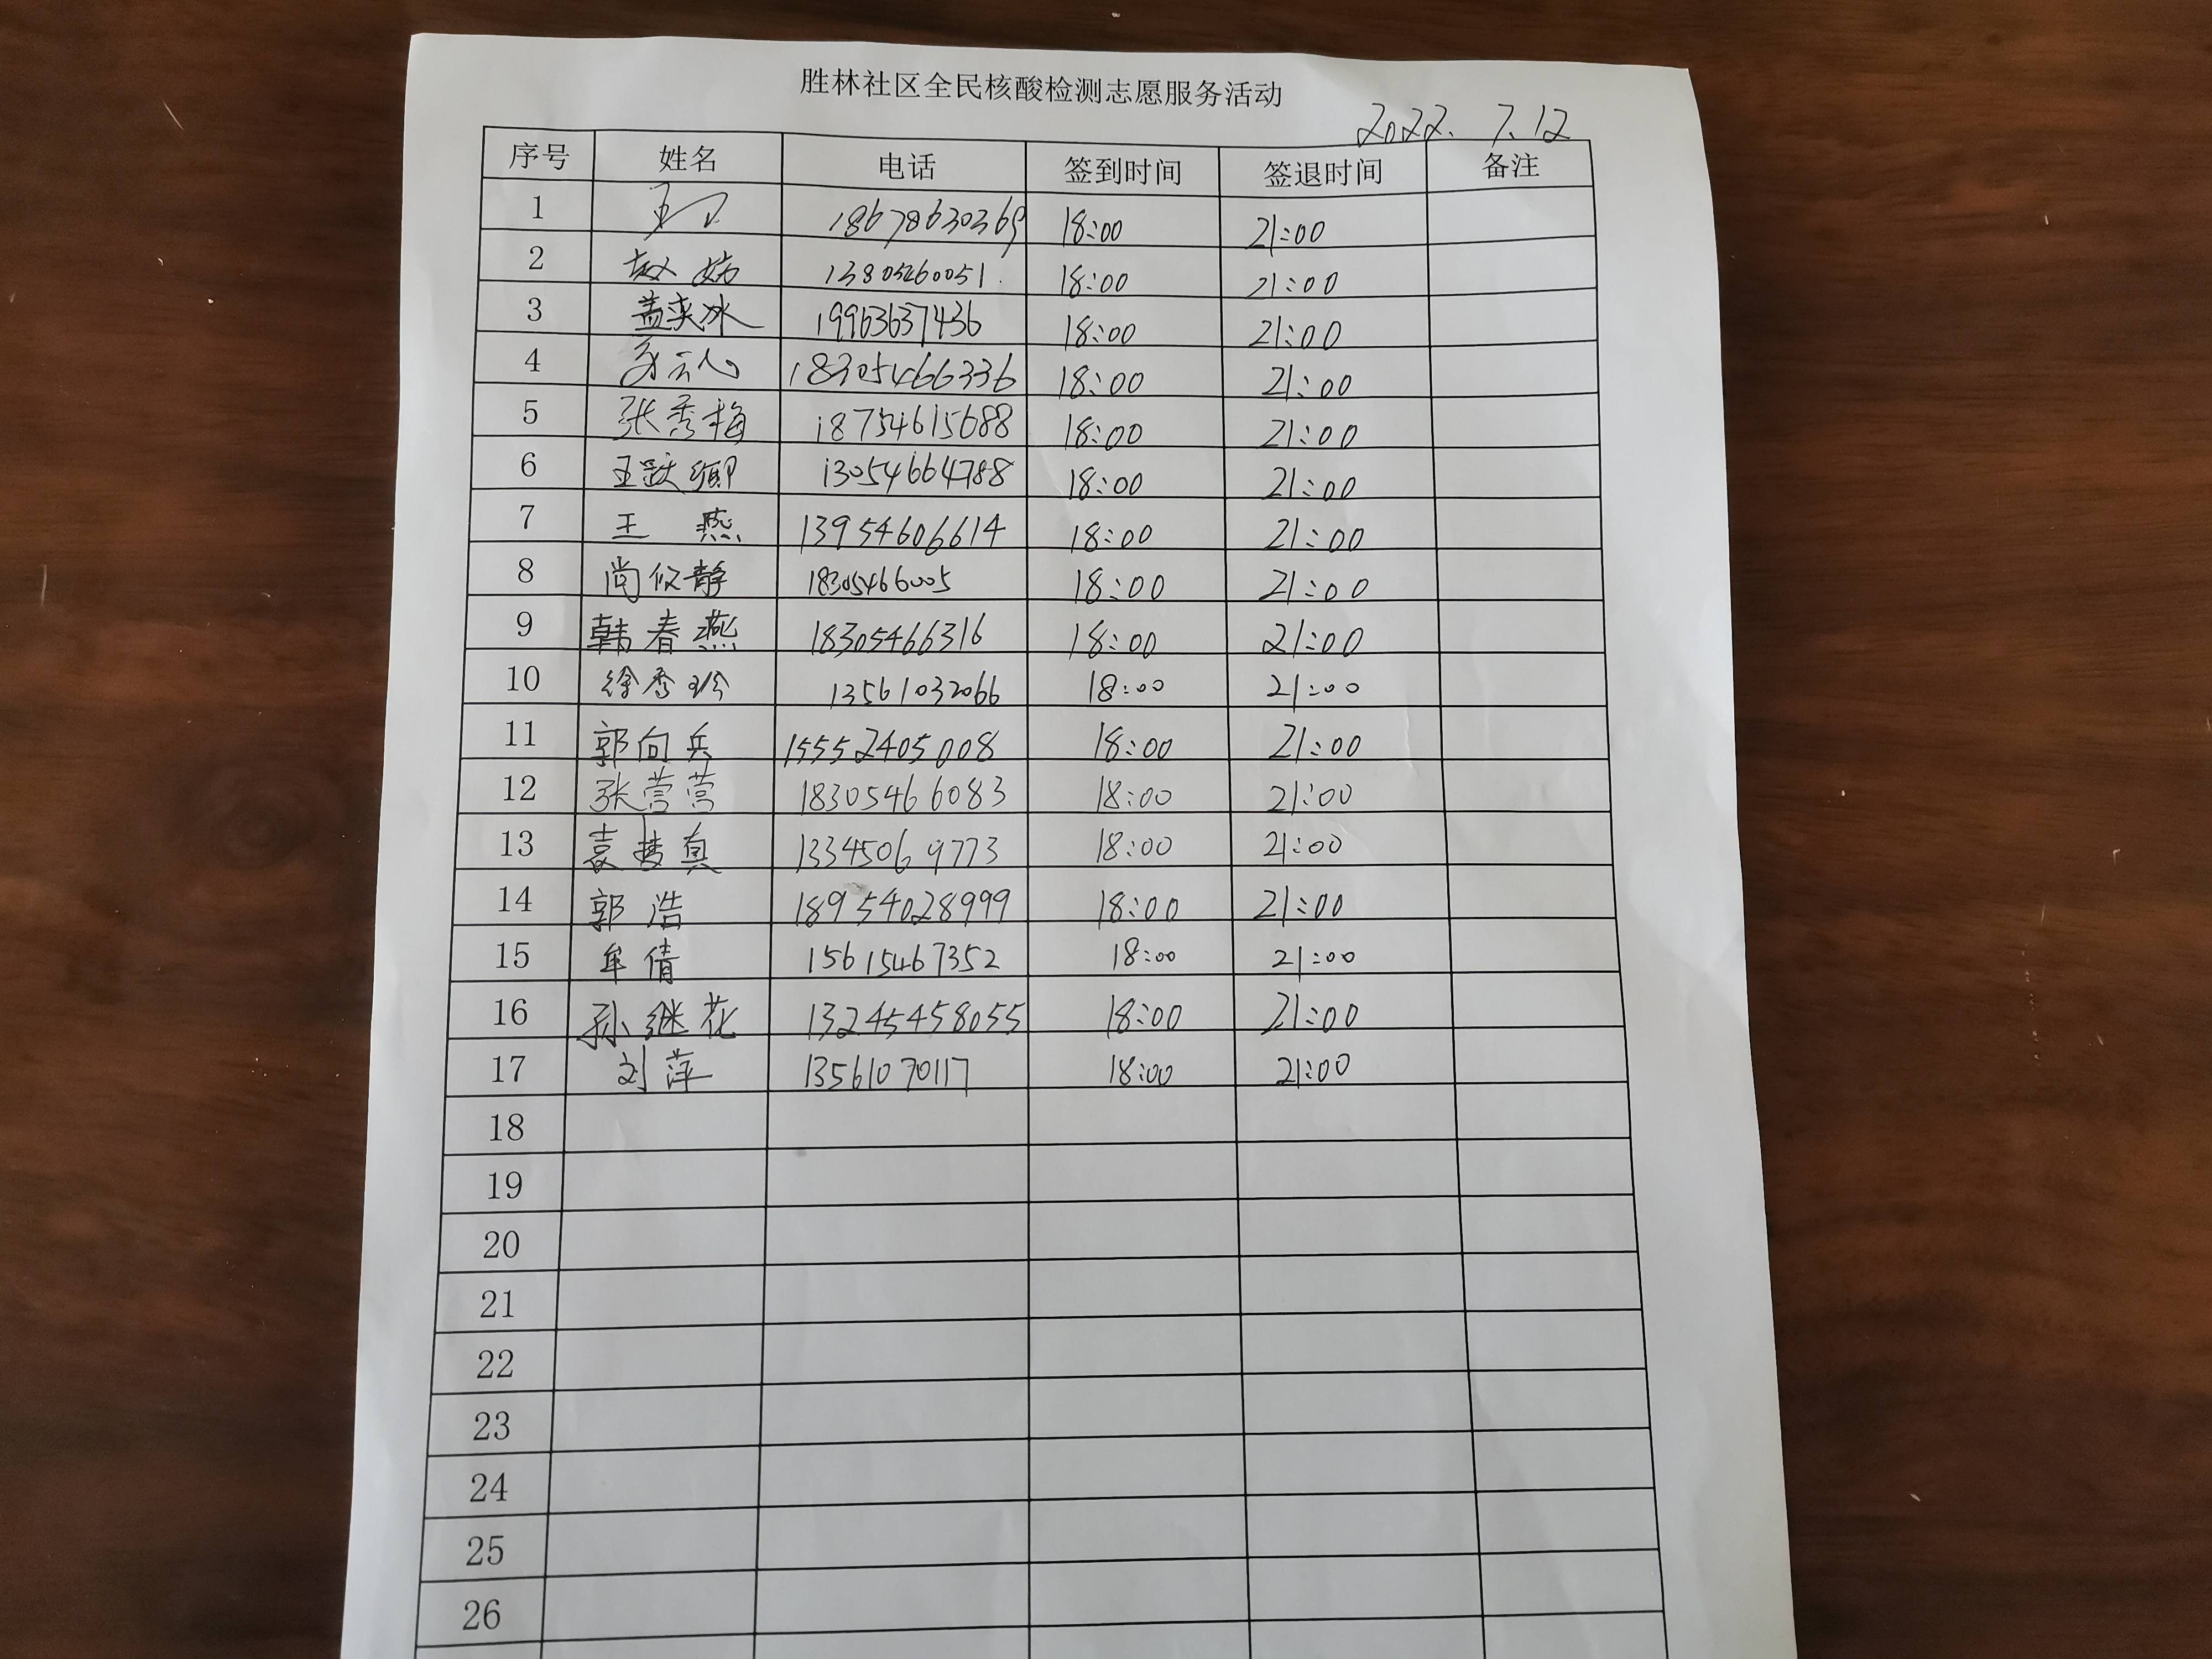 胜林社区全民核酸检测志愿服务活动
2022. 7.12
序号 姓名 电话 签到时间 签退时间 备注
1 18678630369 18:00 21:00
2 赵 13805260051 18:00 21:00
3 盖奕冰 19963637436 18:00 21:00
4 18305466336 18:00 21:00
5 张秀梅 18754615688 18:00 21:00
6 王跃卿 13054664788 18:00 21:00
7 王 燕 13954606614 18:00 21:00
8 尚仪静 18305466005 18:00 21:00
9 韩春燕 18305466316 18:00 21:00
10 徐秀珍 13561032066 18:00 21:00
11 郭向兵 15552405008 18:00 21:00
12 张营营 18305466083 18:00 21:00
13 袁梦真 13345069773 18:00 21:00
14 郭浩 18954028999 18:00 21:00
15 牟倩 15615467352 18:00 21:00
16 孙继花 13245458055 18:00 21:00
17 刘萍 13561070117 18:00 21:00
18
19
20
21
22
23
24
25
26